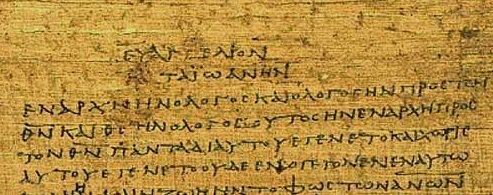 ΕΥΑΓΓΕΛΙΟΝ
ΚΑΤΑΙΩΑΝΝΗΝ
ΕΝΑΡΧΗΗΝΟΛΟΓΟϹΚΑΙΟΛΟΓΟϹΗΝΠΡΟϹΤΟΝ
ΘΝΚΑΙΘϹΗΝΟΛΟΓΟϹΟΥΤΟϹΗΝΕΝΑΡΧΗΠΡΟϹ
ΤΟΝΘΝΠΑΝΤΑΔΙΑΥΤΟΥΕΓΕΝΕΤΟΚΑΙΧΩΡΙϹ
ΑΥΤΟΥΕΓΕΝΕΤΟΟΥΔΕΝΟΓΕΓΟΝΕΝΕΝΑΥΤΩ
ΗΝΤΟΦΩϹΤΩΝΑΝΩΝ